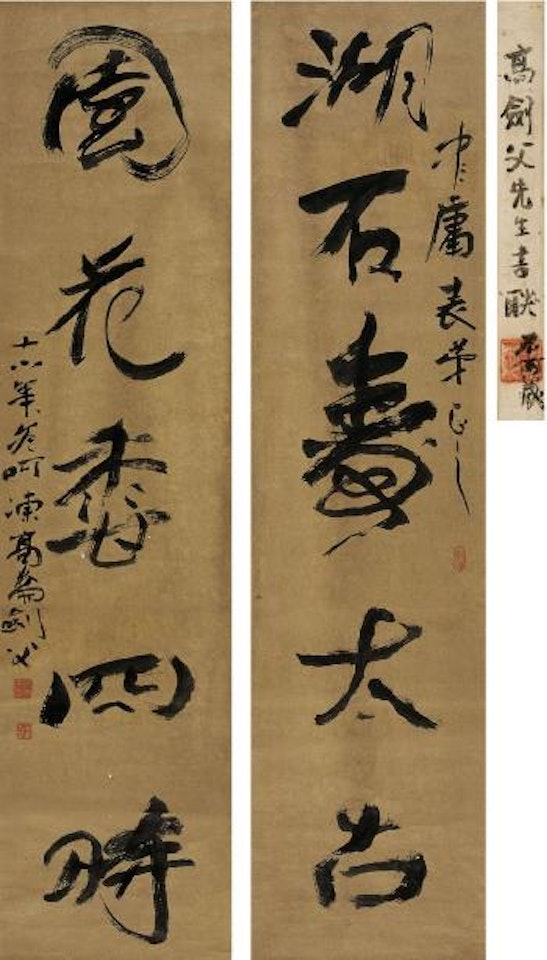 高劍父先生書聯
藏
中庸表弟正之
湖石壽太古
園花香四時
十六年冬呵凍高崙劍父